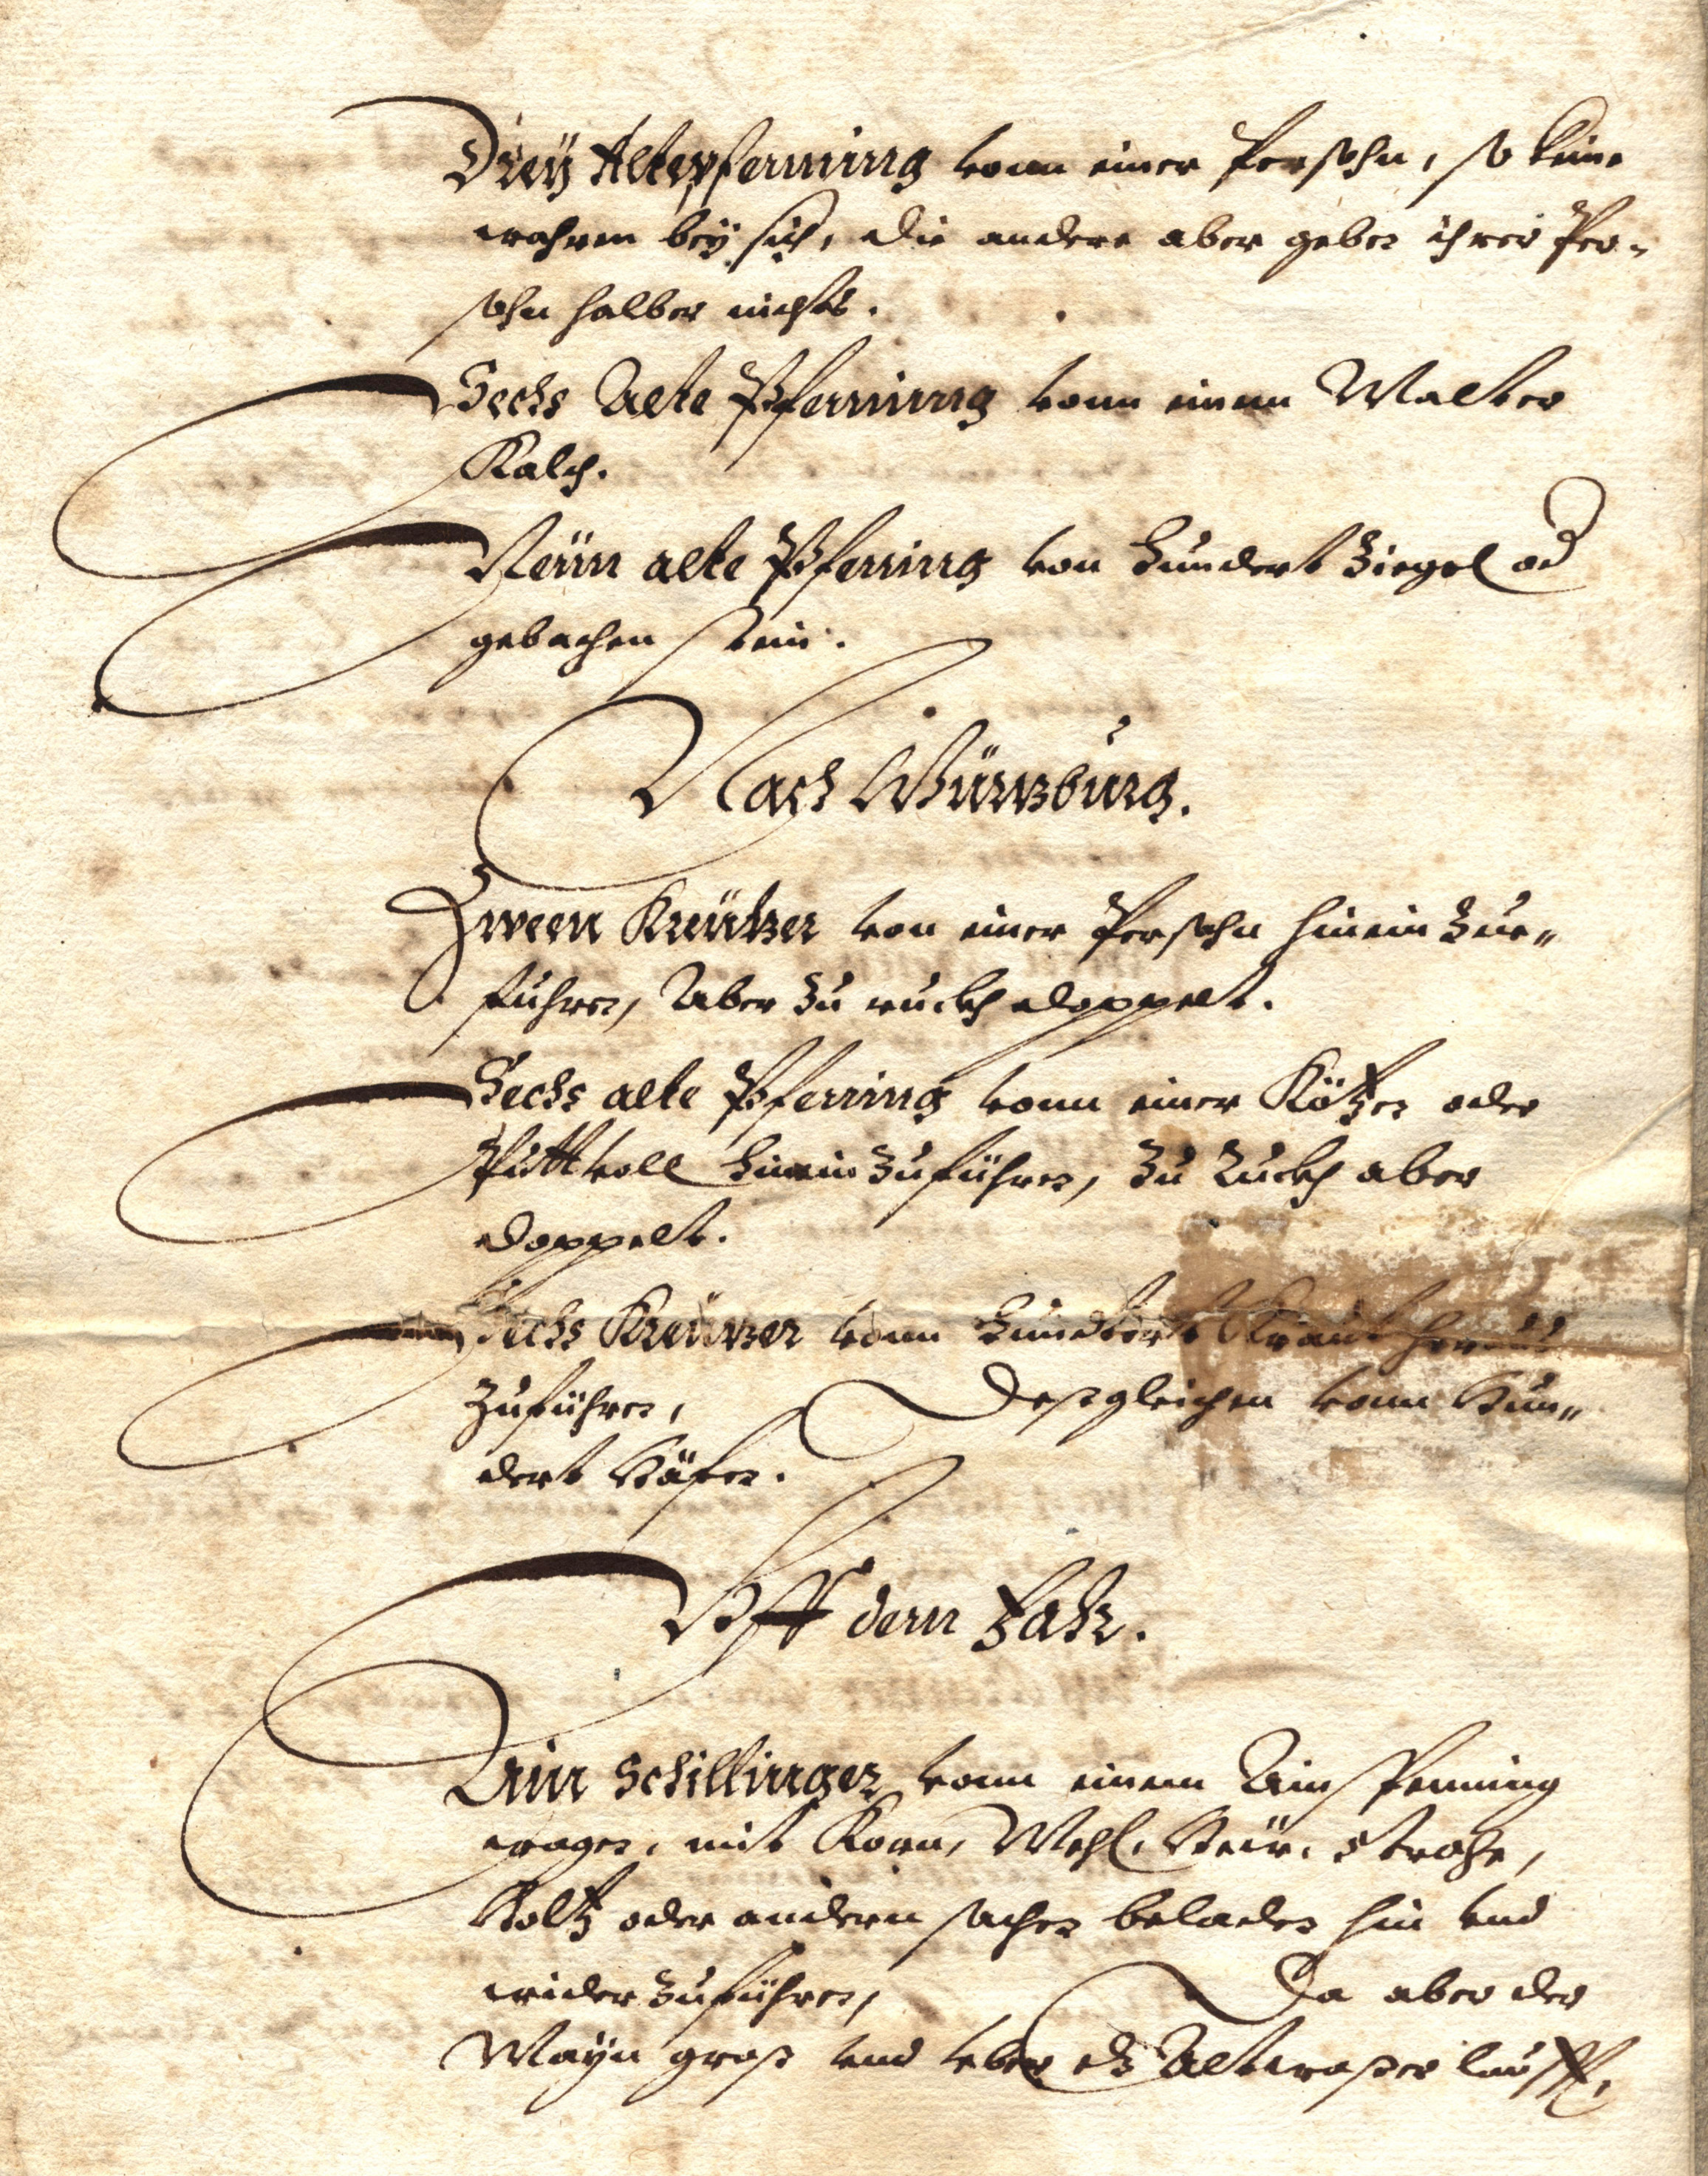 Dreÿ Altepfenning vonn einer Persohn, so keine
wahren beÿ sich, die andere aber geben ihrer Per-
sohn halber nichts.
Sechs Alte Pfenning vonn einem Malter
Kalch.
Neün alte Pfening von Hundert Ziegel od
gebachen stein.
Nach Würtzburg.
Zween Kreützer von einer Persohn hinein Zue„
führen, Aber Zu ruckh doppelt.
Sechs alte Pfening vonn einer Kötzen oder
Putt voll hinein Zuführen, Zu Ruckh aber
doppelt.
Sechs Kreützer vonn Hundert Kraut heraus
Zuführen, Deßgleichen vonn Hun„
dert Häfen.
Vff dem Fahr.
Ain Schillinger vonn einem Ainspenning
wagen, mit Korn, Mehl, Heüw, Strohe,
Holtz oder andern sachen beladen hin vnd
wider Zuführen, Da aber der
Mayn groß vnd vber dz Altwasser lauff,